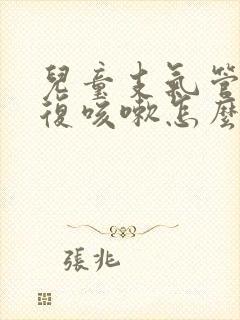 兒童支氣管
復咳嗽怎麼
張兆